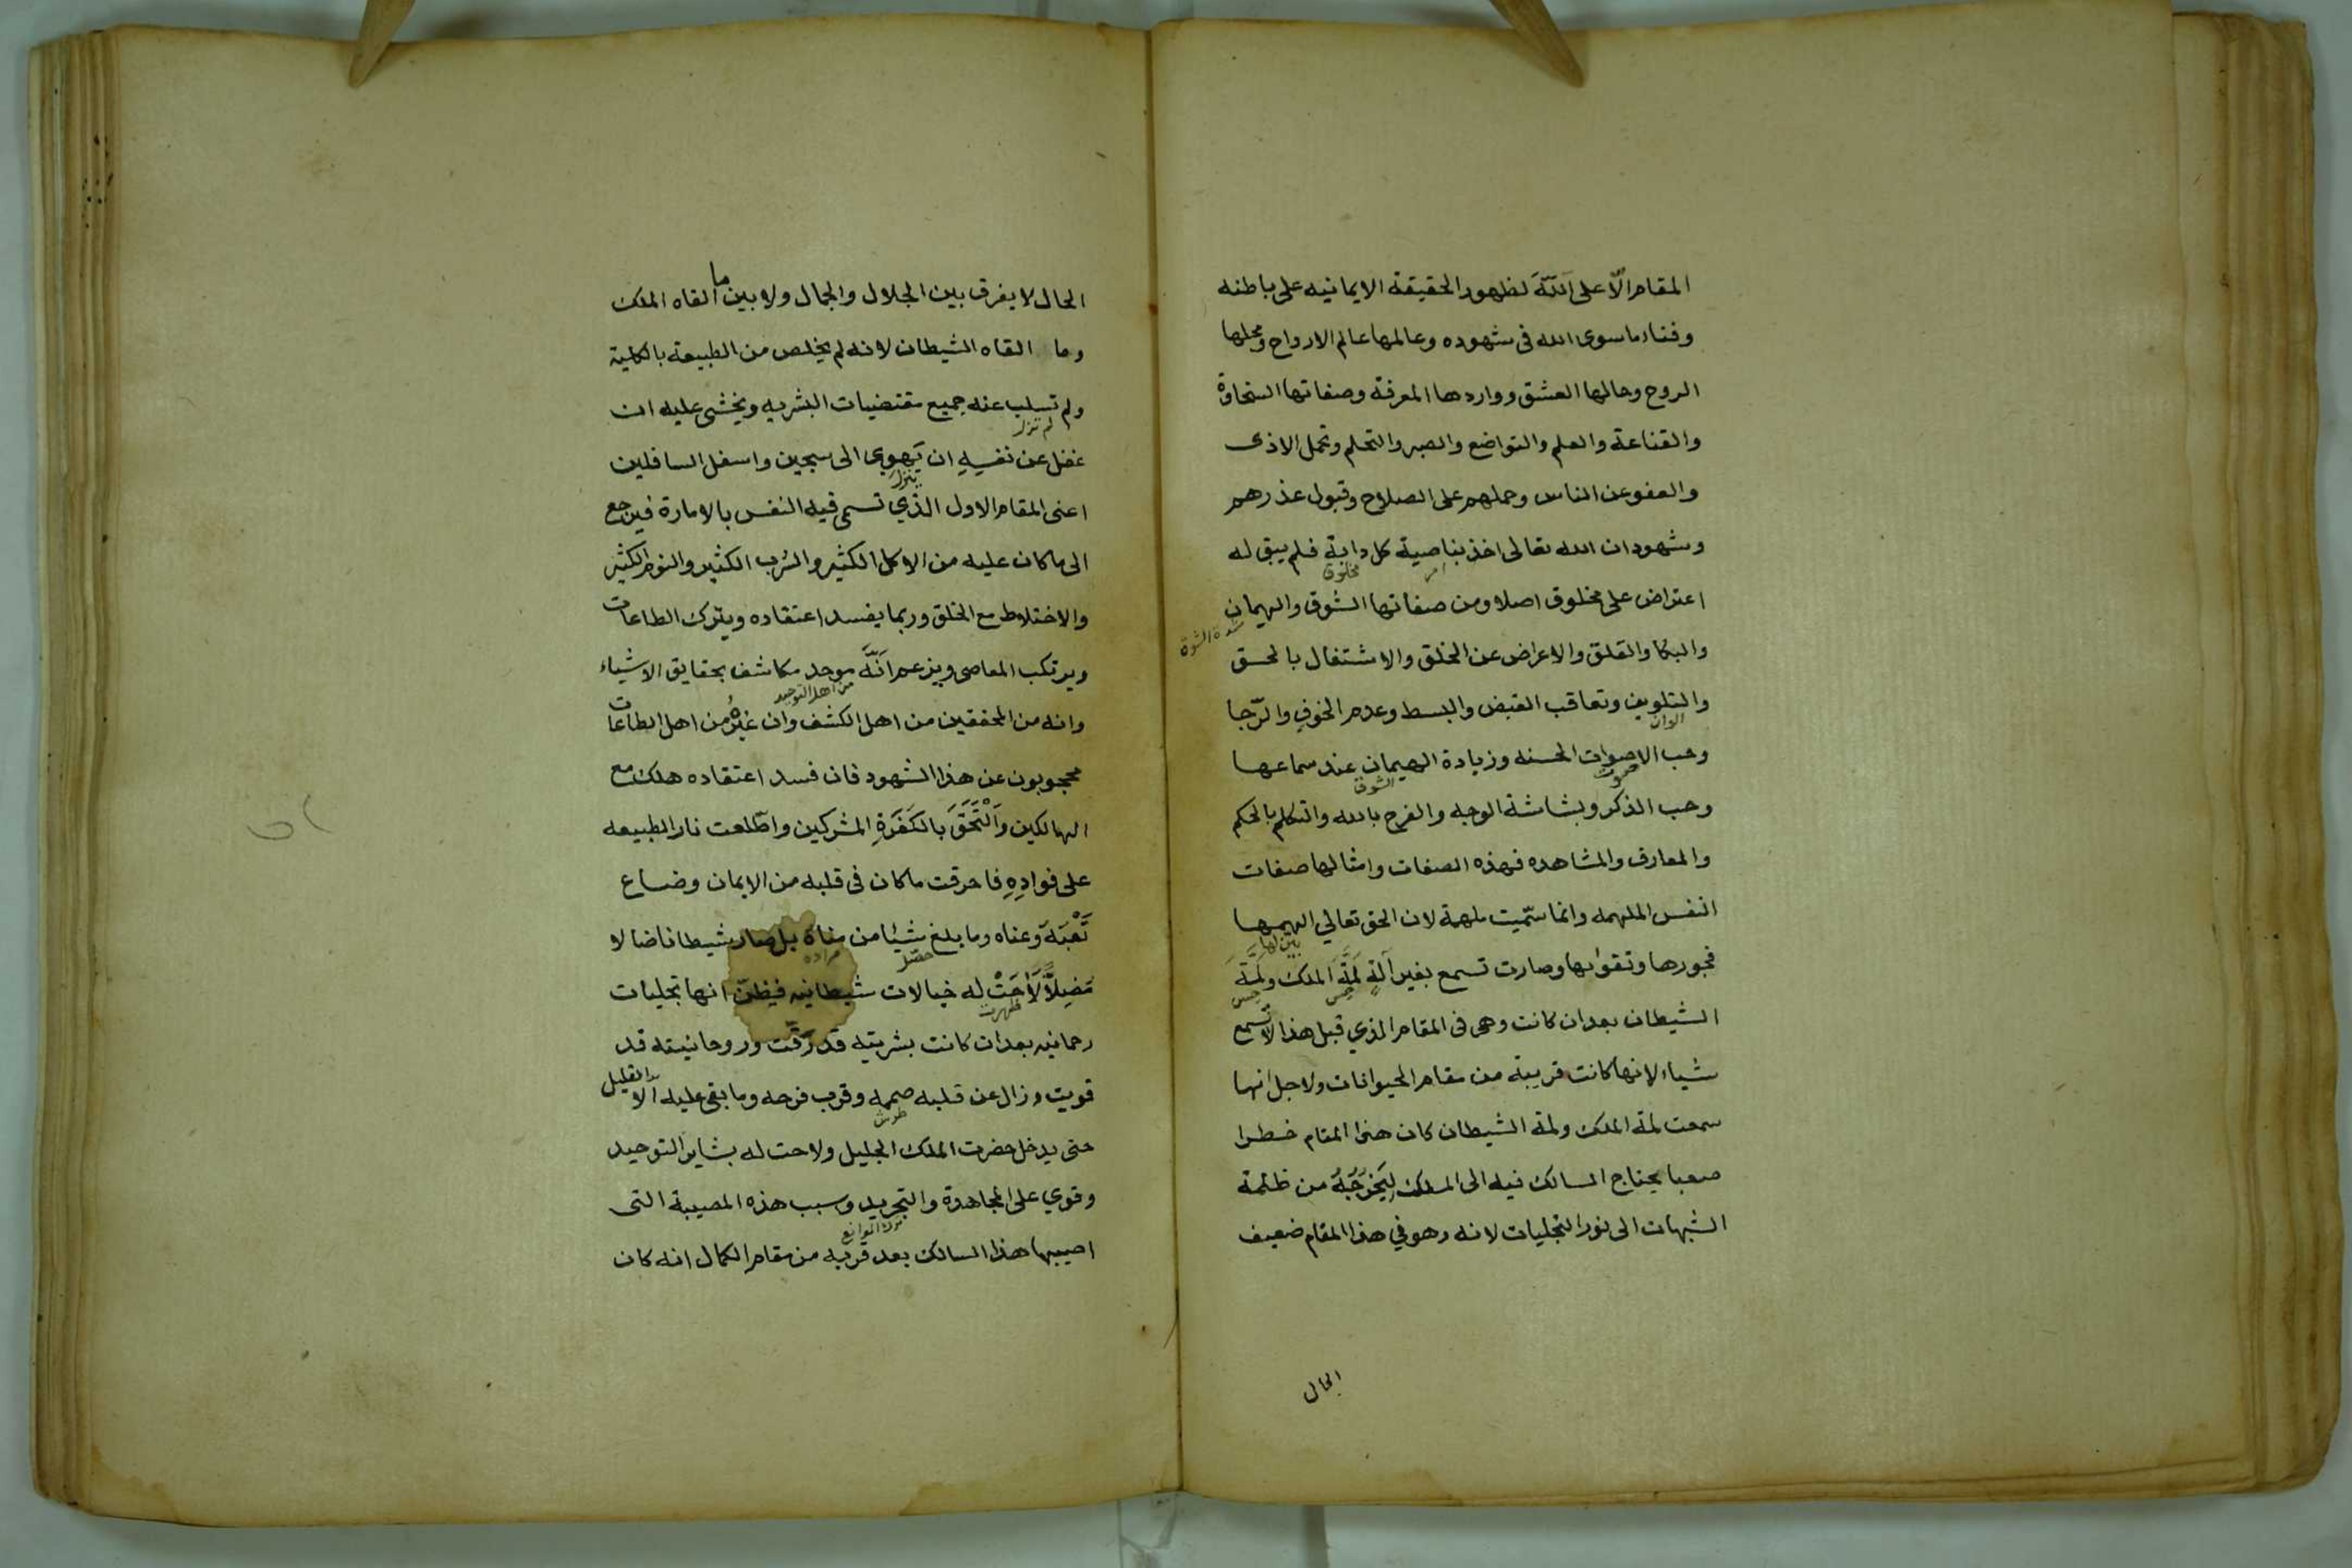 المقام الّا على اللّه لظهور الحقيقة الايمانيه على باطنه
وفناء ما سوى الله فى شهوده وعالمها عالم الارواح ومحلها
الروح وحالها العشق وواردها المعرفة وصفاتها السخاوة
والقناعة والعلم والتواضع والصبر والتحلم وتحمل الاذى
والعفو عن الناس وحملهم على الصلاح وقبول عذرهم
وشهود ان الله تعالى اخذ بناصية كل دابة فلم يبق له
مخلوق
اعتراض على مخلوق اصلا ومن صفاتها الشوق والهيمان
شدة الشوق
والبكا والقلق والاعراض عن الخلق والاشتغال بالحق
والتلوين وتعاقب القبض والبسط وعدم الخوف والرّجا
الوان
وحب الاصوات الحسنه وزيادة الهيمان عند سماعها
صوت الشوق
وحب الذكر وبشاشة الوجه والفرح بالله والتكلم بالحكم
والمعارف والمشاهده فهذه الصفات وامثالها صفات
النفس الملهمه وانما سمّيت ملهمة لان الحق تعالي الهمها
بين لها
فجورها وتقواها وصارت تسمع بغير آلة لمّة الملك ولمّة
الشيطان بعد ان كانت وهى فى المقام الذي قبل هذا لا تسمع
شياء لانها كانت قريبة من مقام الحيوانات ولاجل انها
سمعت لمة الملك ولمة الشيطان كان هذا المقام خطرا
صعبا يحتاج السالك فيه الى المسلك ليخرجه من ظلمة
الشبهات الى نور التجليات لانه وهو في هذا المقام ضعيف
الحال
الحال لا يفرق بين الجلال والجمال ولا بين ما القاه الملك
وما القاه الشيطان لانه لم يخلص من الطبيعة بالكلية
ولم تسلب عنه جميع مقتضيات البشريه ويخشى عليه ان
لم تزل
غفل عن نفسِهِ ان يَهوِى الى سجين واسفل السافلين
ينزل
اعنى المقام الاول الذي تسمى فيه النفس بالامارة فيرجع
الى ما كان عليه من الاكل الكثير والشرب الكثير والنوم الكثير
والاختلاط مع الخلق وربما يفسد اعتقاده ويترك الطاعات
ويرتكب المعاصى ويزعم انّه موحد مكاشف بحقايق الاشياء
من اهل التوحيد
وانه من المحققين من اهل الكشف وان غيرُهُ من اهل الطاعات
محجوبون عن هذا الشهود فان فسد اعتقاده هلك مع
الهالكين وَالْتَحَقَ بالكَفَرَةِ المشركين واطّلعت نار الطبيعه
على فوادِهِ فاحرقت ما كان فى قلبه من الايمان وضاع
تَعْبَهُ وعناه وما بلغ شيئا من مناه بل صار شيطانا ضالا
حصل مراده
مُضِلاًّ لَاحَتْ له خيالات شيطانيه فيظنّ انها تجليات
ظهرت
رحمانيه بعد ان كانت بشريته قد رَقّت وروحانيته قد
قويت وزال عن قلبه صممه وقرب فرحه وما بقى عليه الا القليل
حتى يدخل حضرت الملك الجليل ولاحت له بشاير التوحيد
وقوي على المجاهدة والتجريد وسبب هذه المصيبة التى
اصيبها هذا السالك بعد قربه من مقام الكمال انه كان